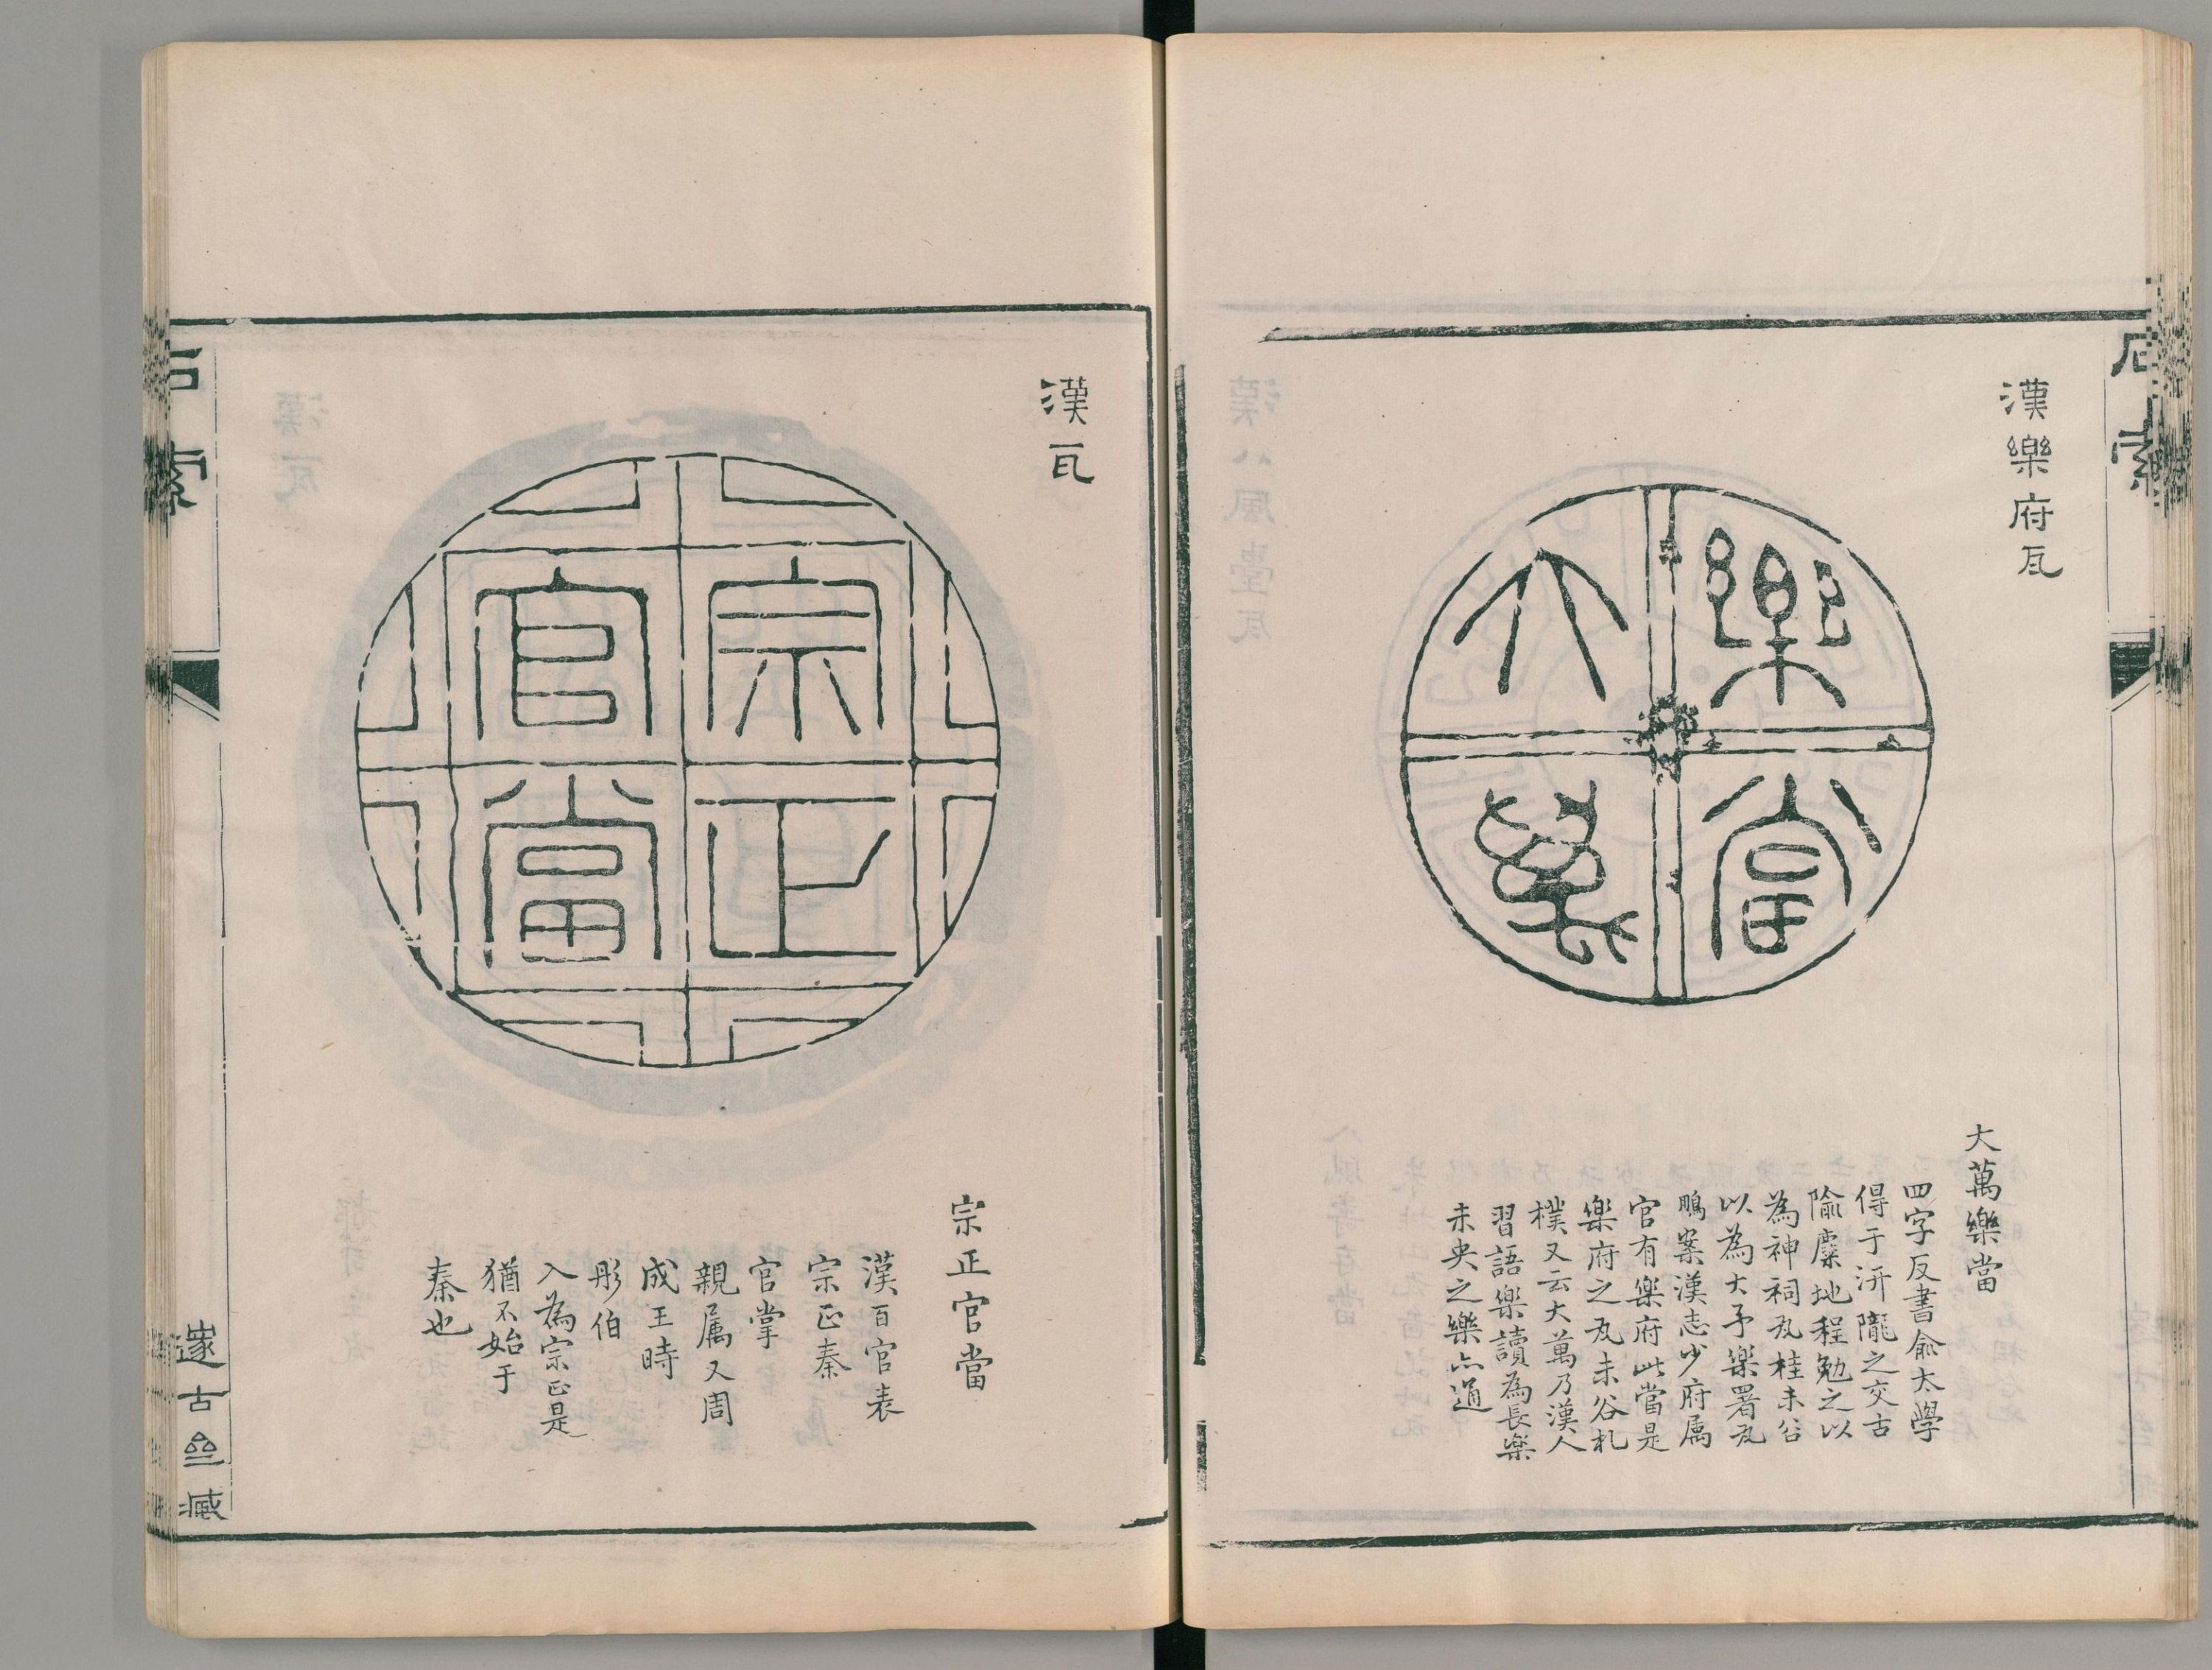 石索
漢樂府瓦
樂
當
大
萬
大萬樂當
四字反書俞太學
得于汧隴之交古
隃麋地程勉之以
為神祠瓦桂未谷
以為大予樂署瓦
鵬案漢志少府屬
官有樂府此當是
樂府之瓦未谷札
樸又云大萬乃漢人
習語樂讀為長樂
未央之樂亦通
漢瓦
宗正
官當
宗正官當
漢百官表
宗正秦
官掌
親屬又周
成王時
彤伯
入為宗正是
猶不始于
秦也
石索
邃古叄臧